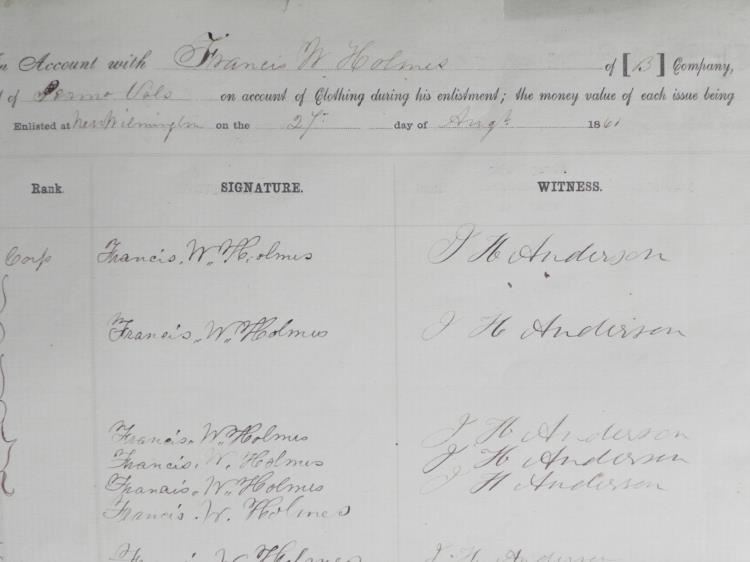 In Account with Francis W Holmes of [B] Company,
t of Penna Vols on account of Clothing during his enlistment; the money value of each issue being
Enlisted at New Wilmington on the 27" day of Augt 1861
Rank. SIGNATURE. WITNESS.
Corp Francis. W. Holmes J H Anderson
Francis. W. Holmes J H Anderson
Francis. W. Holmes J H Anderson
Francis. W. Holmes J H Anderson
Francis. W. Holmes J H Anderson
Francis. W. Holmes
Francis W Holmes J. H. Anderson